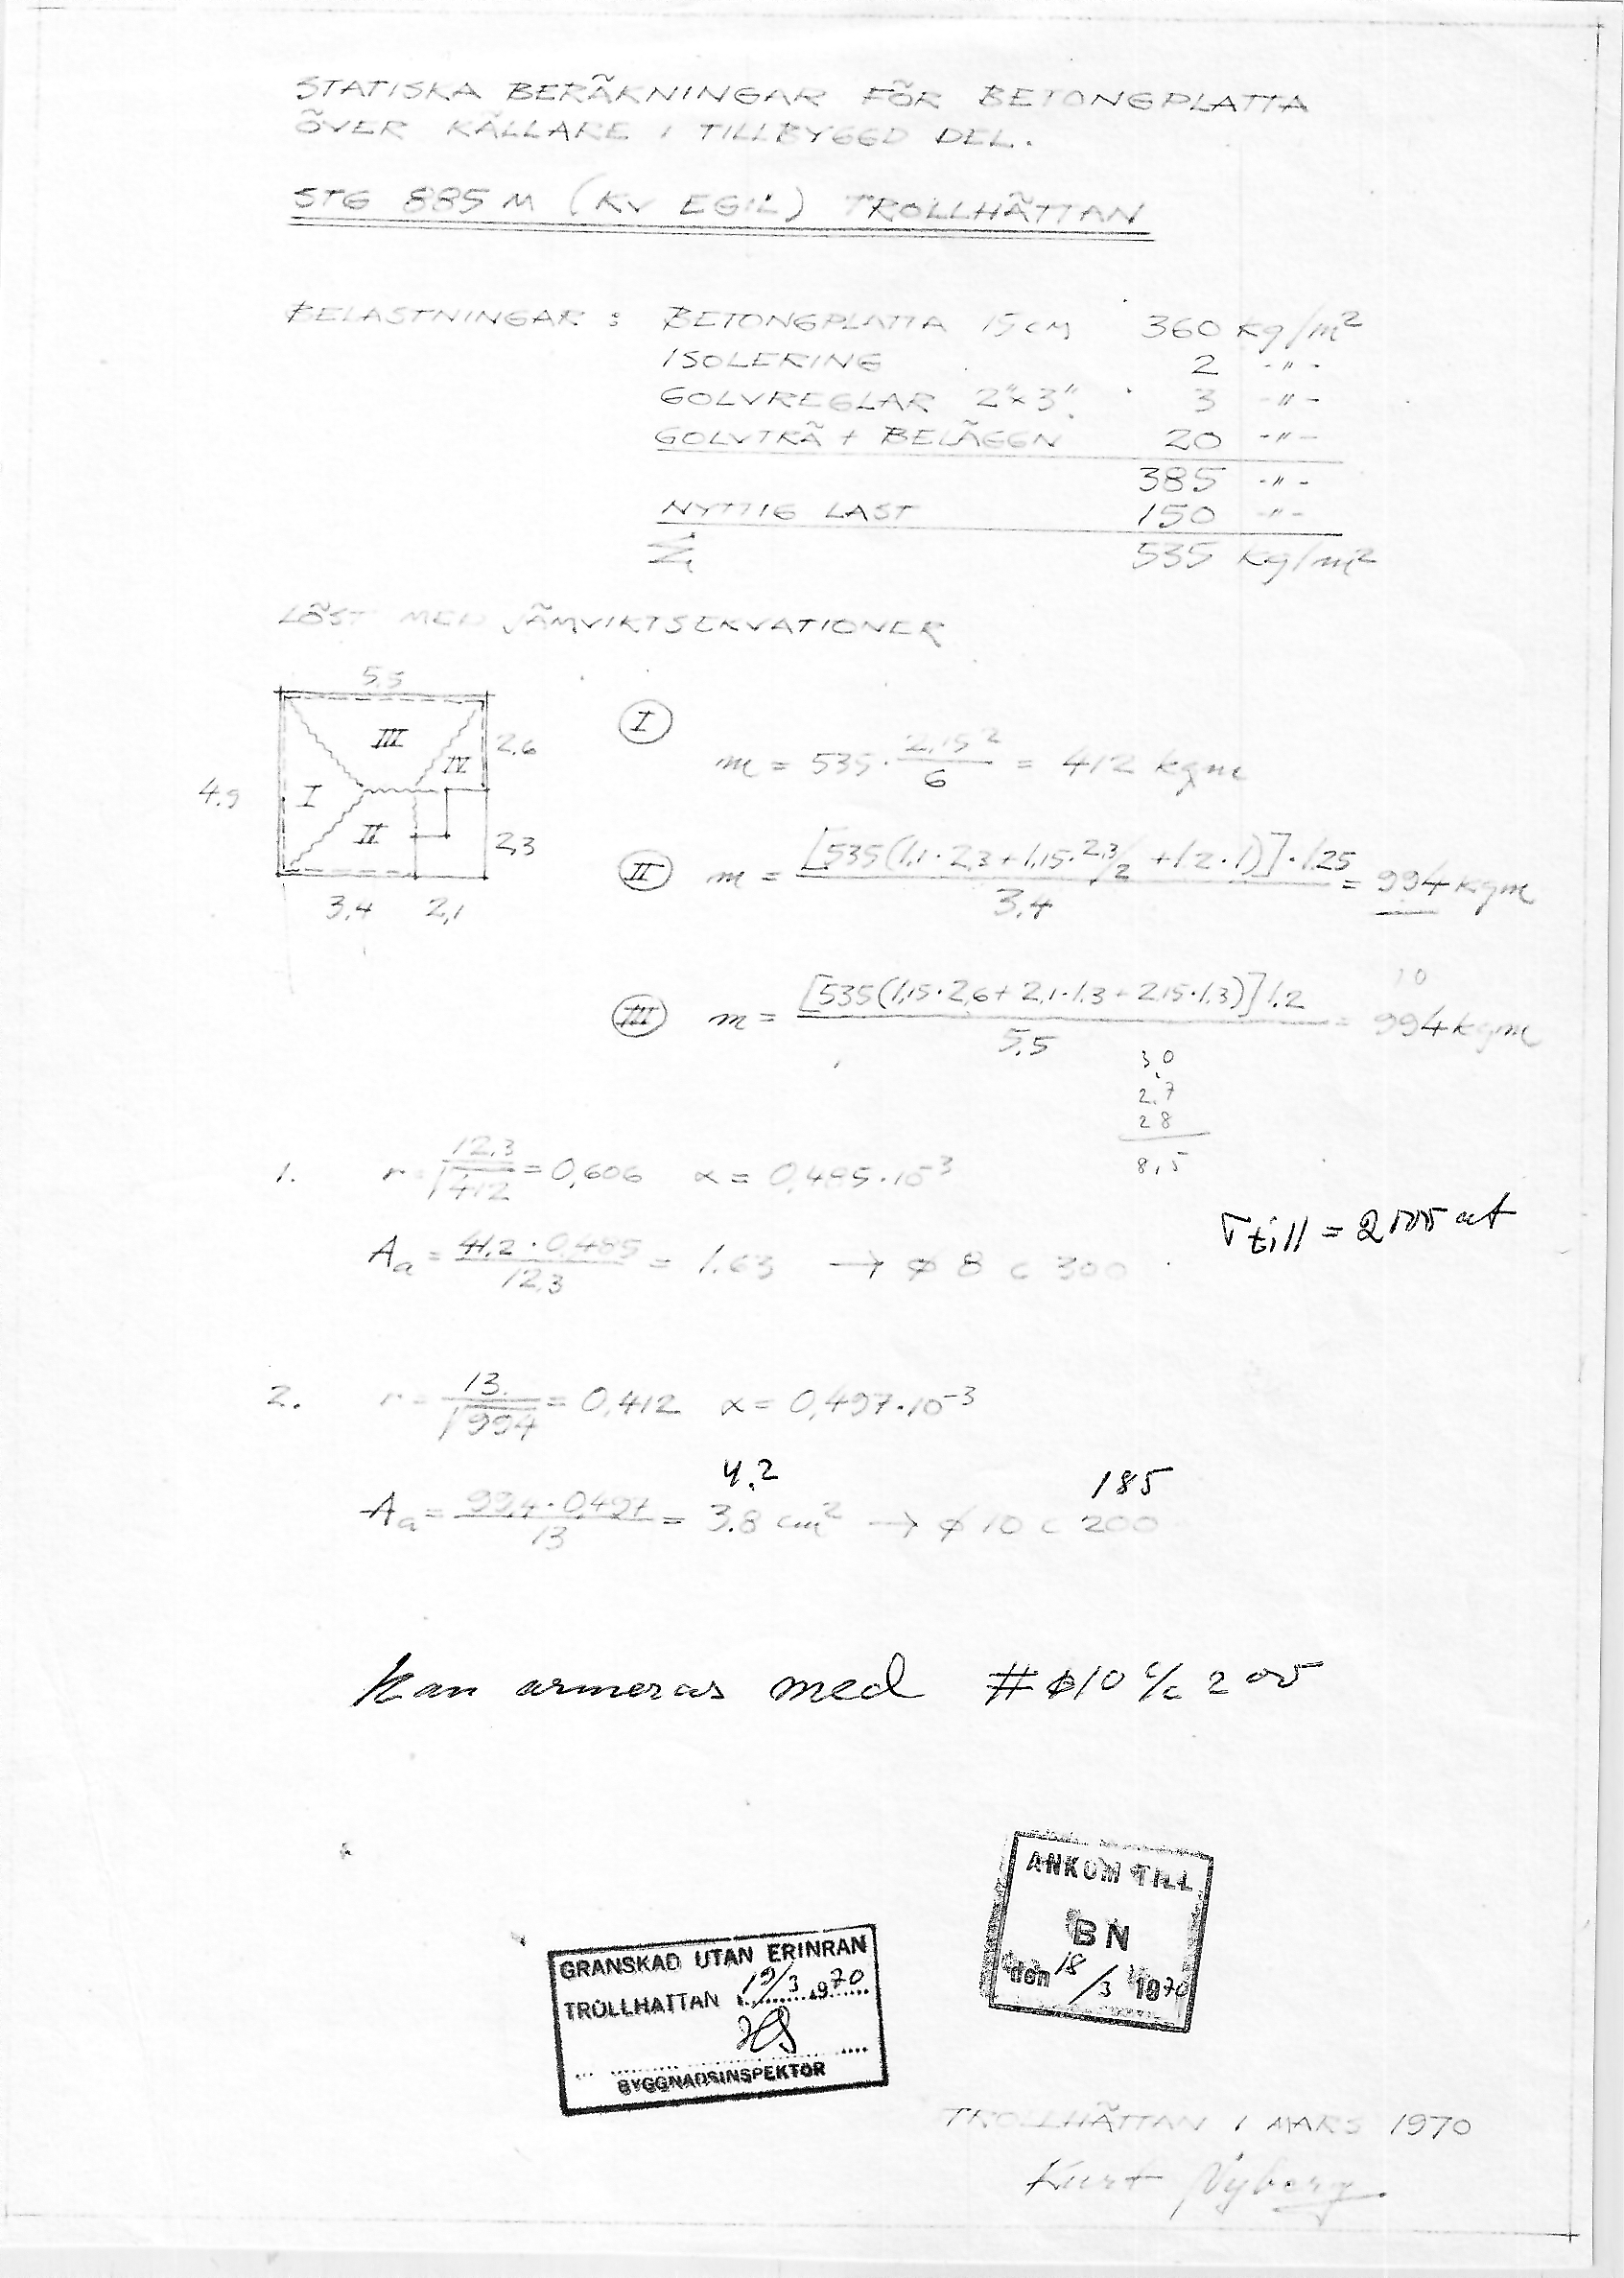 STATISKA BERÄKNINGAR FÖR BETONGPLATTA
ÖVER KÄLLARE I TILLBYGGD DEL.
STG 885 M (KV EGIL) TROLLHÄTTAN
BELASTNINGAR : BETONGPLATTA 15 CM 360 kg/m²
ISOLERING 2 -"-
GOLVREGLAR 2"x3" 3 -"-
GOLVTRÄ + BELÄGGN 20 -"-
385 -"-
NYTTIG LAST 150 -"-
Σ 535 kg/m²
LÖST MED JÄMVIKTSEKVATIONER
5,5
III
2,6
IV
4,9
I
II
2,3
3,4 2,1
I m = 535 · 2,15² / 6 = 412 kgm
II m = [535(1,1 · 2,3 + 1,15 · 2,3/2 + 1,2 · 1)] · 1,25 / 3,4 = 994 kgm
10
III m = [535(1,15 · 2,6 + 2,1 · 1,3 + 2,15 · 1,3)] 1,2 / 5,5 = 994 kgm
3,0
2,7
28
8,5
1. r = 12,3 / √412 = 0,606 α = 0,485 · 10⁻³
σ till = 2000 at
Aa = 41,2 · 0,485 / 12,3 = 1.63 → ø 8 c 300
2. r = 13 / √994 = 0,412 α = 0,497 · 10⁻³
4,2 185
Aa = 99,4 · 0,497 / 13 = 3.8 cm² → ø 10 c 200
kan armeras med # ø10 c/c 200
ANKOM TILL
BN
den 18/3 1970
GRANSKAD UTAN ERINRAN
TROLLHÄTTAN 19/3 1970
BYGGNADSINSPEKTOR
TROLLHÄTTAN I MARS 1970
Kurt Nyberg